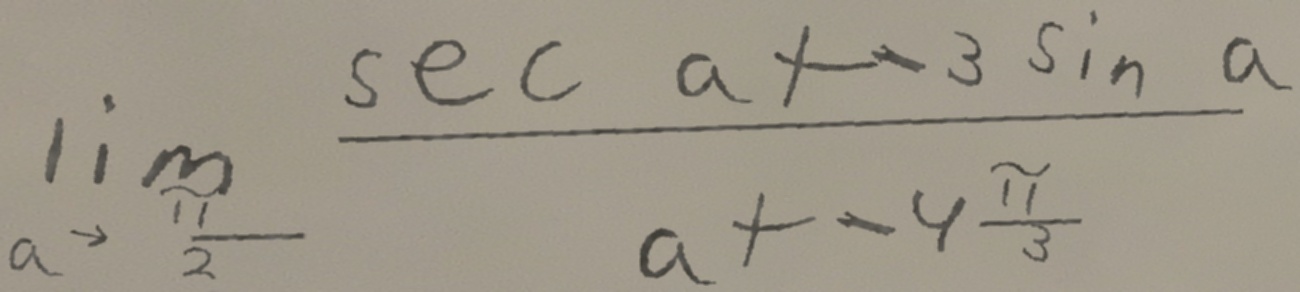 lim a→π/2 (sec a + -3 sin a)/(a + -4 π/3)